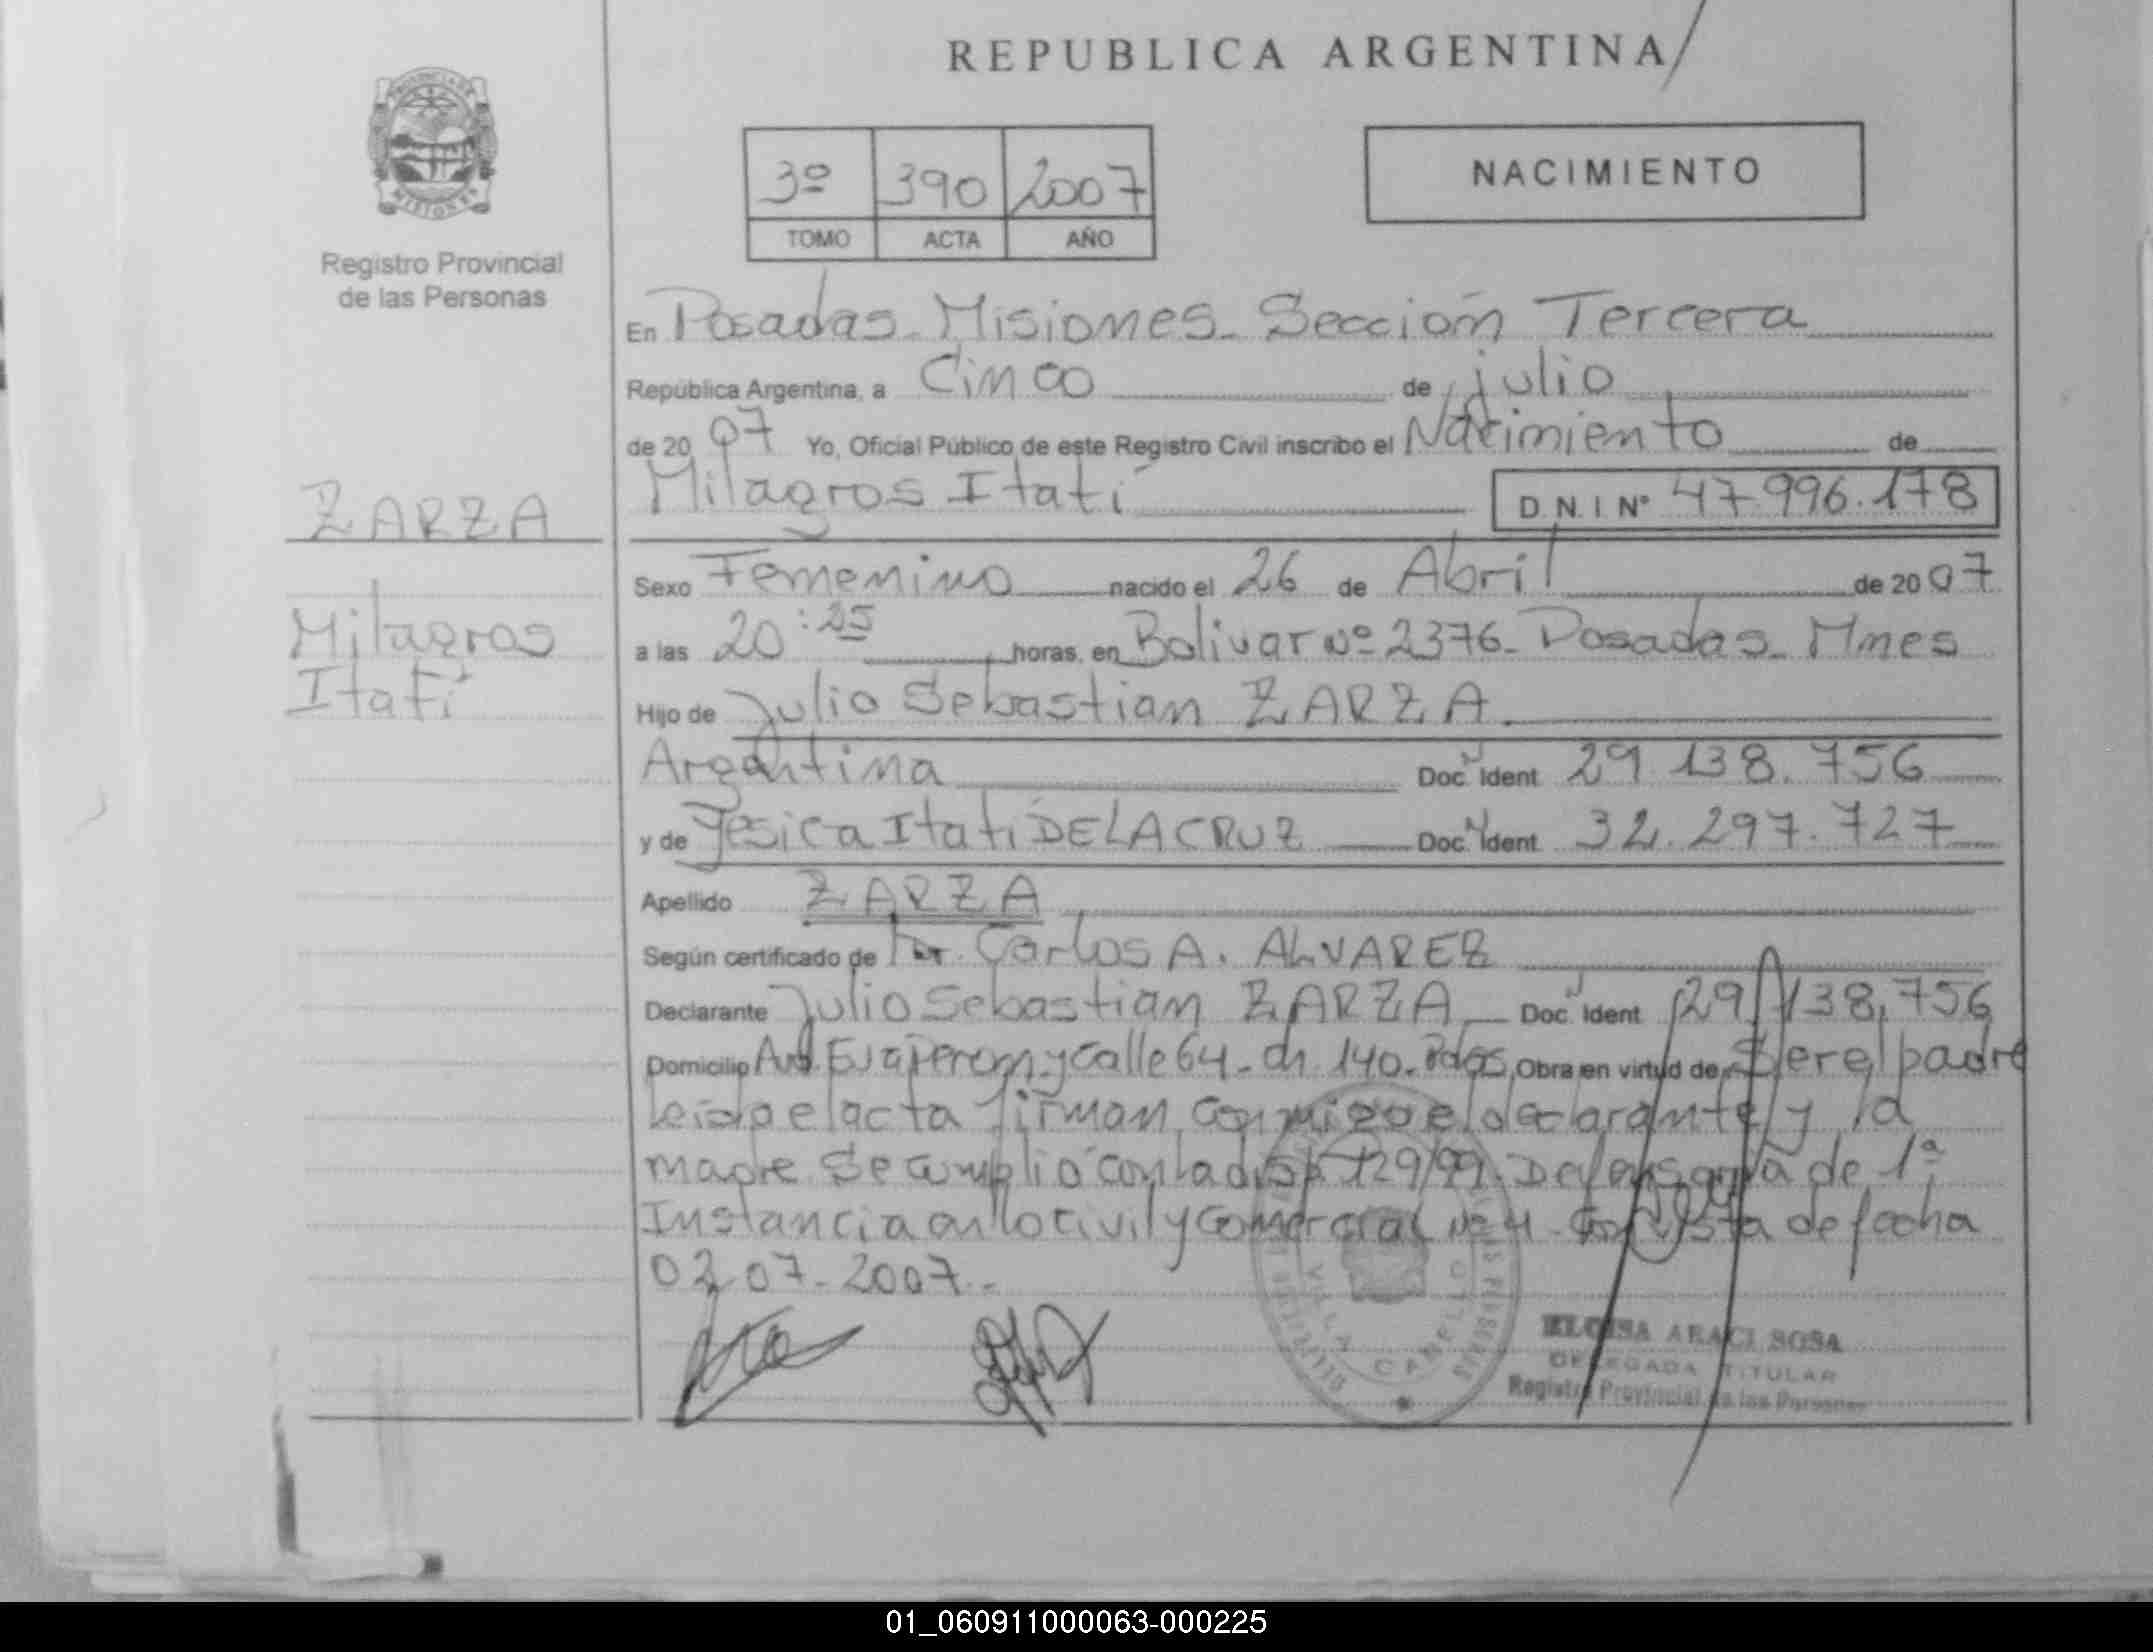 REPUBLICA ARGENTINA
PROVINCIA DE
MISIONES
Registro Provincial
de las Personas
3º 390 2007
TOMO ACTA AÑO
NACIMIENTO
En Posadas - Misiones - Sección Tercera
República Argentina, a Cinco de julio
de 2007 Yo, Oficial Público de este Registro Civil inscribo el Nacimiento de
Milagros Itatí D.N.I Nº 47.996.178
ZARZA
Milagros
Itatí
Sexo Femenino nacido el 26 de Abril de 2007
a las 20:25 horas, en Bolivar Nº 2376 - Posadas - Mnes
Hijo de Julio Sebastian ZARZA
Argentina Doc. Ident 29.138.756
y de Yesica Itatí DE LA CRUZ Doc. Ident 32.297.727
Apellido ZARZA
Según certificado de Dr. Carlos A. ALVAREZ
Declarante Julio Sebastian ZARZA Doc. Ident 29.138.756
Domicilio Avd. Eva Peron y Calle 64 - ch 140 - Pdas, Obra en virtud de Ser el padre
leida el acta firman conmigo el declarante y la
madre Se cumplió con la disp. 129/99. Defensoria de 1ª
Instancia en lo civil y Comercial Nº 4 - vista de fecha
02-07-2007.-
VILLA CABELLO
ELOISA ARACI SOSA
DELEGADA TITULAR
Registro Provincial de las Personas
01_060911000063-000225